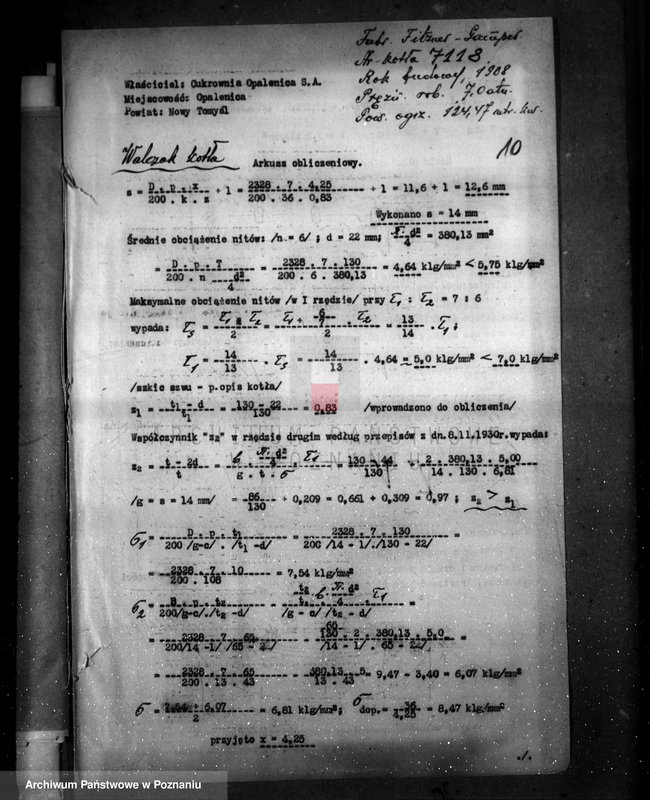 Fabr. Fitzner-Gamper
Nr-kotła 7113.
Rok budowy, 1908
Pręż. rob. 7,0 atn.
Pow. ogrz. 124,47 mtr. kw.
Właściciel: Cukrownia Opalenica S.A.
Miejscowość: Opalenica
Powiat: Nowy Tomyśl
10
Walczak kotła Arkusz obliczeniowy.
s = D . p . x / 200 . k . z + 1 = 2328 . 7 . 4,25 / 200 . 36 . 0,83 + 1 = 11,6 + 1 = 12,6 mm
Wykonano s = 14 mm
Średnie obciążenie nitów: /n = 6/ ; d = 22 mm; π . d² / 4 = 380,13 mm²
= D . p . T / 200 . n d² / 4 = 2328 . 7 . 130 / 200 . 6 . 380,13 = 4,64 klg/mm² < 5,75 klg/mm²
Maksymalne obciążenie nitów /w I rzędzie/ przy τ1 : τ2 = 7 : 6
wypada: τs = τ1 + τ2 / 2 = τ1 + 6/7 . τ2 / 2 = 13 / 14 . τ1;
τ1 = 14 / 13 . τs = 14 / 13 . 4,64 = 5,0 klg/mm² < 7,0 klg/mm²
/szkic szwu - p.opis kotła/
z1 = t1 - d / t1 = 130 - 22 / 130 = 0,83 /wprowadzono do obliczenia/
Współczynnik "z2" w rzędzie drugim według przepisów z dn.8.11.1930r.wypada:
z2 = t - 2d / t + π . d² / 4 . τ1 / g . t . σ = 130 - 44 / 130 + 2 . 380,13 . 5,00 / 14 . 130 . 6,81
/g = s = 14 mm/ = 86 / 130 + 0,209 = 0,661 + 0,309 = 0,97 ; z2 > z1
σ1 = D . p . t1 / 200 /g-c/ . /t1 -d/ = 2328 . 7 . 130 / 200 /14 - 1/./130 - 22/ =
= 2328 . 7 . 10 / 200 . 108 = 7,54 klg/mm²
σ2 = D . p . t2 / 200/g-c/./t2 -d/ - t2 / t1 . π . d² / 4 . τ1 / /g - c/ /t2 - d/ =
= 2328 . 7 . 65 / 200/14 -1/ /65 - 22/ - 65 / 130 . 2 . 380,13 . 5,0 / /14 - 1/ . 65 - 22/ =
= 2328 . 7 . 65 / 200 . 13 . 43 - 380,13 . 5 / 13 . 43 = 9,47 - 3,40 = 6,07 klg/mm²
σ = 7,54 + 6,07 / 2 = 6,81 klg/mm²; σ dop. = 36 / 4,25 = 8,47 klg/mm²
przyjęto x = 4,25
./.
Archiwum Państwowe w Poznaniu